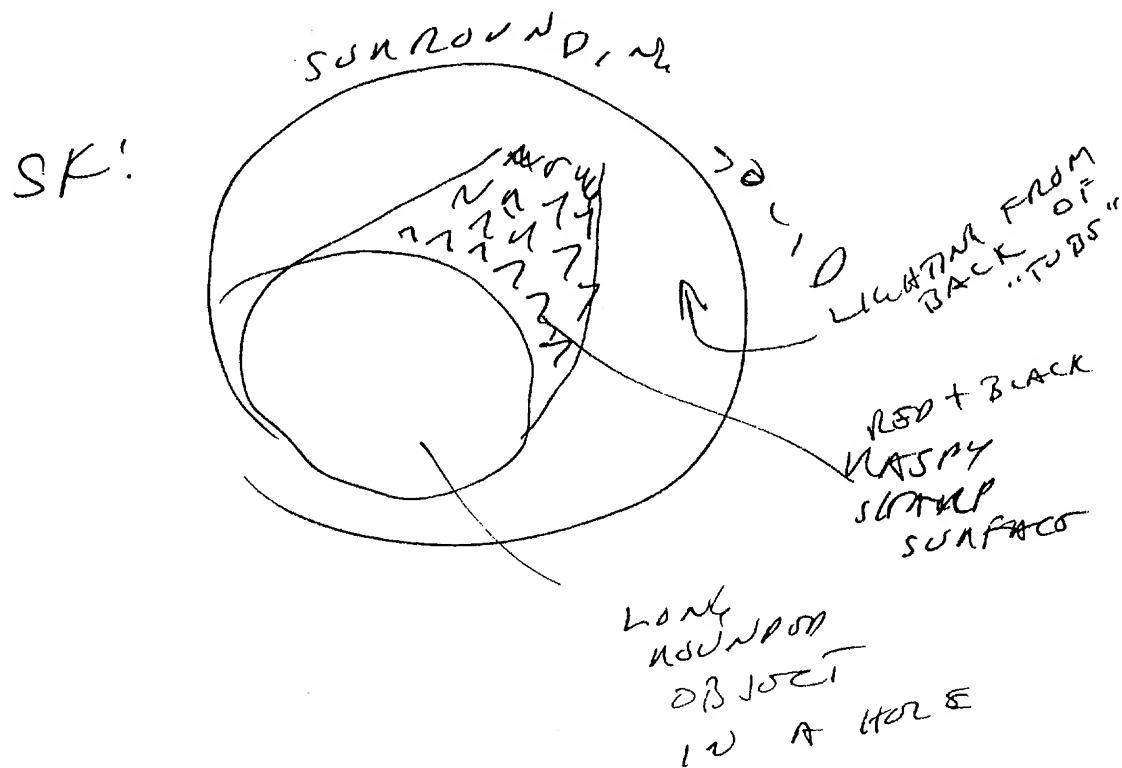 SURROUNDING
SK!
SOLID
LIGHTING FROM
BACK OF
"TUBE"
RED + BLACK
RASPY
SHARP
SURFACE
LONG
ROUNDED
OBJECT
IN A HOLE